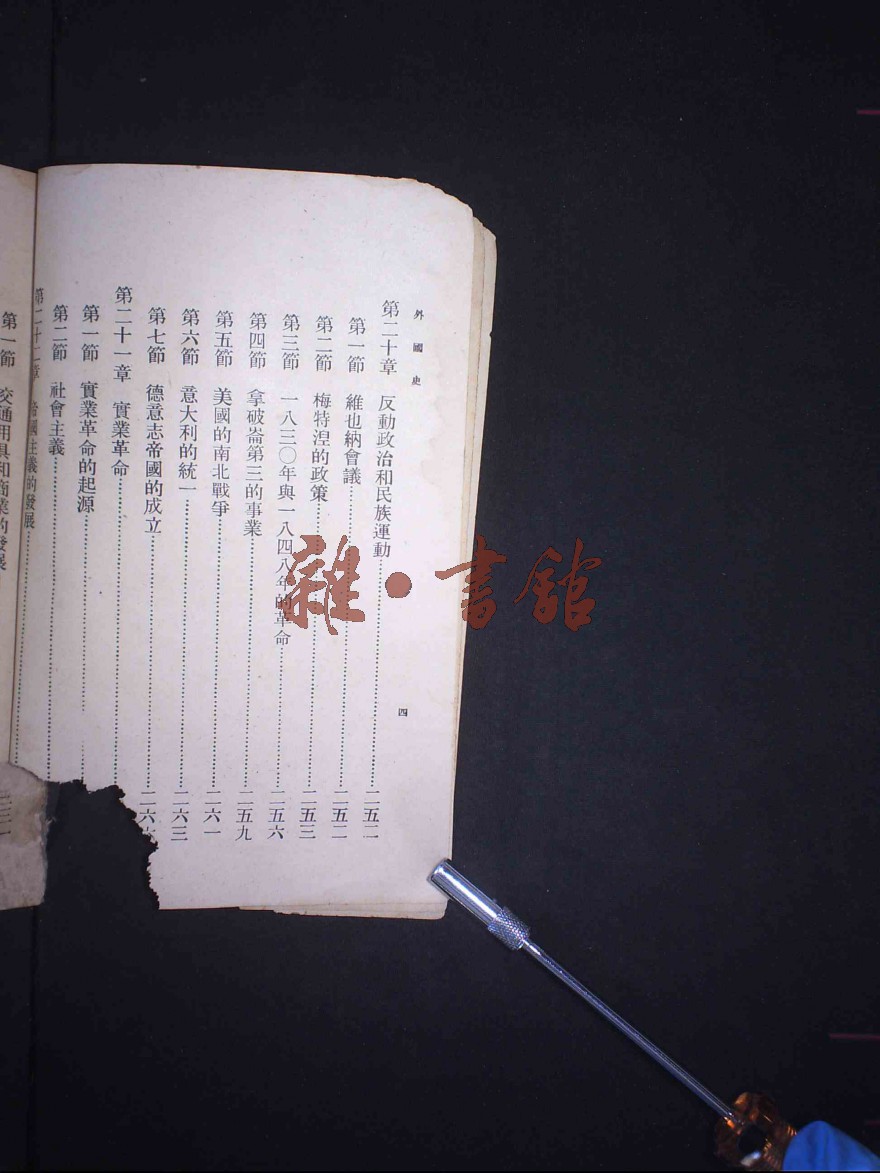 外國史
四
第二十章 反動政治和民族運動……二五二
第一節 維也納會議……二五二
第二節 梅特涅的政策……二五三
第三節 一八三〇年與一八四八年的革命……二五六
第四節 拿破崙第三的事業……二五九
第五節 美國的南北戰爭……二六一
第六節 意大利的統一……二六三
第七節 德意志帝國的成立……二六
第二十一章 實業革命……
第一節 實業革命的起源……
第二節 社會主義……
第二十二章 帝國主義的發展……
第一節 交通用具和商業的發展
雜·書館